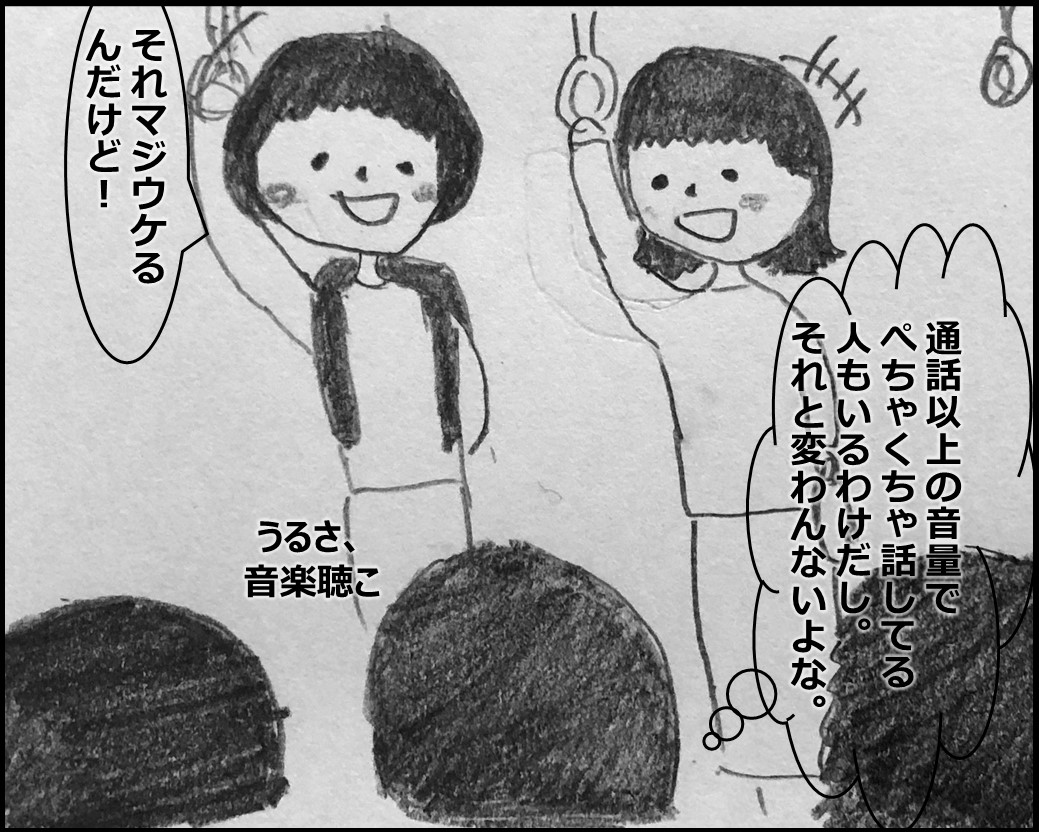 それマジウケる
んだけど！
通話以上の音量で
ぺちゃくちゃ話してる
人もいるわけだし。
それと変わんないよな。
うるさ、
音楽聴こ